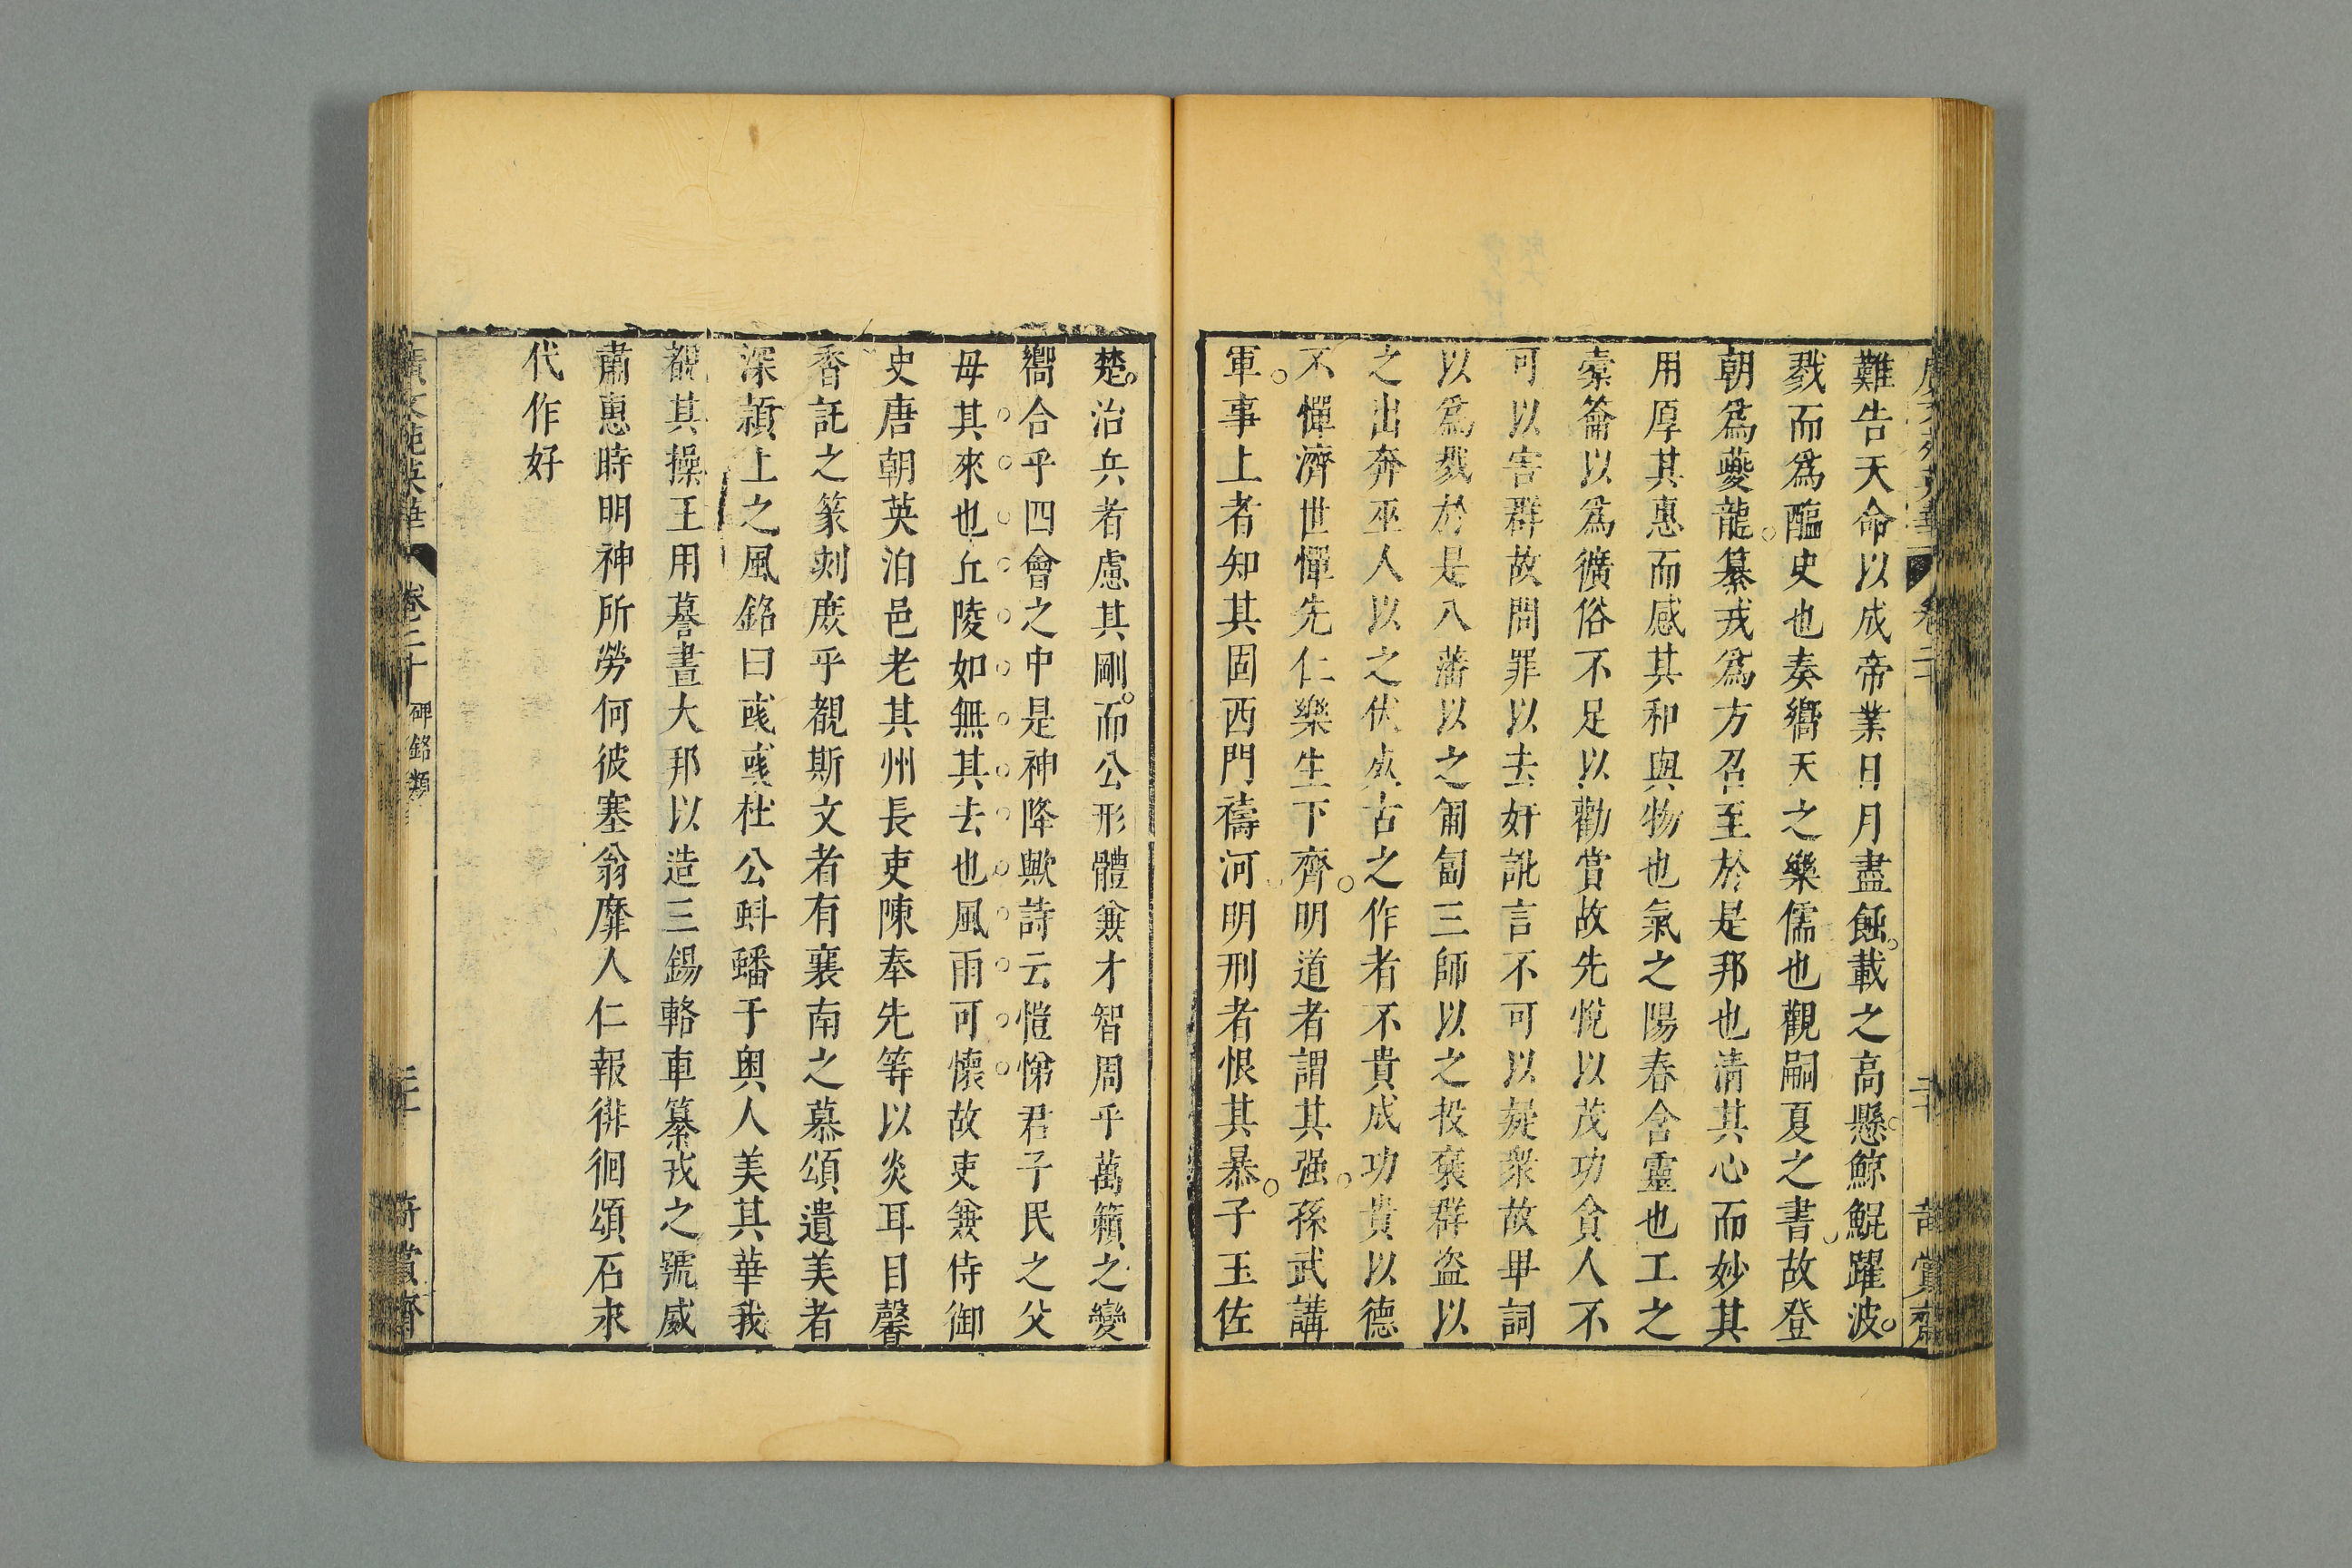 難告天命以成帝業日月盡蝕載之高懸鯨鯤躍波
戮而爲醢史也奏嚮天之樂儒也觀嗣夏之書故登
朝爲夔龍纂戎爲方召至於是邦也清其心而妙其
用厚其惠而感其和與物也氣之陽春含靈也工之
橐籥以爲獷俗不足以勸賞故先悅以茂功貪人不
可以害群故問罪以去奸訛言不可以疑衆故畢詞
以爲戮於是八蕃以之匍匐三師以之投褒群盜以
之出奔巫人以之伏炎古之作者不貴成功貴以德
不憚濟世憚先仁樂生下齊明道者謂其强孫武講
軍事上者知其固西門禱河明刑者恨其暴子玉佐
楚治兵者慮其剛而公形體兼才智周乎萬籟之變
嚮合乎四會之中是神降歟詩云愷悌君子民之父
母其來也丘陵如無其去也風雨可懷故吏兼侍御
史唐朝英洎邑老其州長吏陳奉先等以炎耳目馨
香託之篆刻庶乎覩斯文者有襄南之慕頌遺美者
深潁上之風銘曰彧彧杜公蚪蟠于輿人美其華我
覩其操王用謩晝大邦以造三錫輅車纂戎之號威
肅惠時明神所勞何彼塞翁靡人仁報徘徊頌石永
代作好
廣文苑英華 卷二十 碑銘類